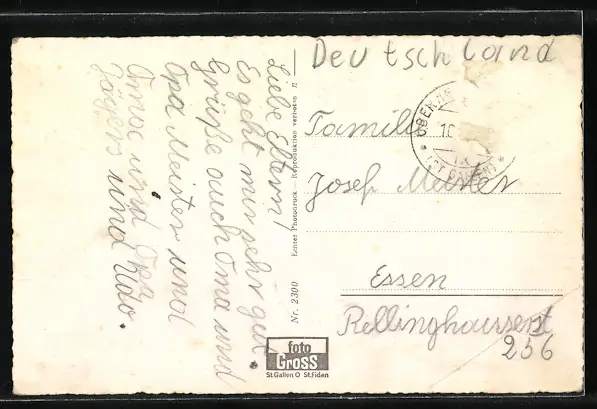 Liebe Eltern!
Es geht mir sehr gut.
Grüße auch Oma und
Opa Meister und
Oma und Opa
Jörgens und Udo.
Nr. 2300 Echter Photodruck — Reproduktion verboten
foto
Gross
St.Gallen O St.Fiden
Deutschland
Familie
Josef Meister
Essen
Rellinghauserst
256
OBER
10
(ST. GALLEN)